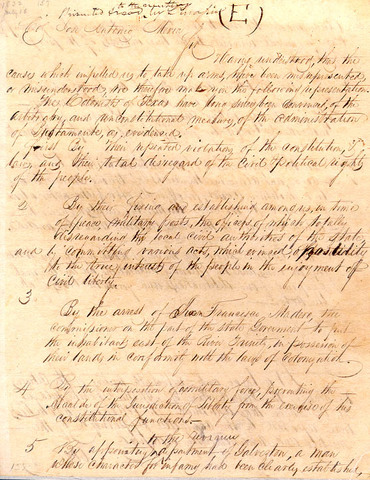 (E)
Col Jose Antonio Mexia
Sir
Having understood, that the
causes which impelled us to take up arms, have been misrepresented,
or misunderstood, we therefore make you the following representation.
The Colonists of Texas have long since been convinced, of the
arbitrary, and unconstitutional measures, of the administration
of Bustamante, as evidenced.
First By their repeated violations of the constitution, &
laws, and their total disregard of the Civil & Political rights
of the people.
2 By their fixing and establishing among us, in time
of peace, military posts, the officers of which, totally
disregarding the local civil authorities of the State
and by committing various acts, which evinced, opposition
to the true interest of the people in the enjoyment of
Civil liberty.
3
By the arrest of Juan Francisco Madero, the
commissioner on the part of the state Government to put
the inhabitants east of the River Trinity, in possession of
their lands in conformity with the laws of Colonization.
4 By the interposition of military force, preventing the
Alcalde of the Jurisdiction of Liberty from the exercise of his
constitutional functions.
5 By appointing
to the revenue
department of Galveston, a man
whose character for infamy had been clearly established,